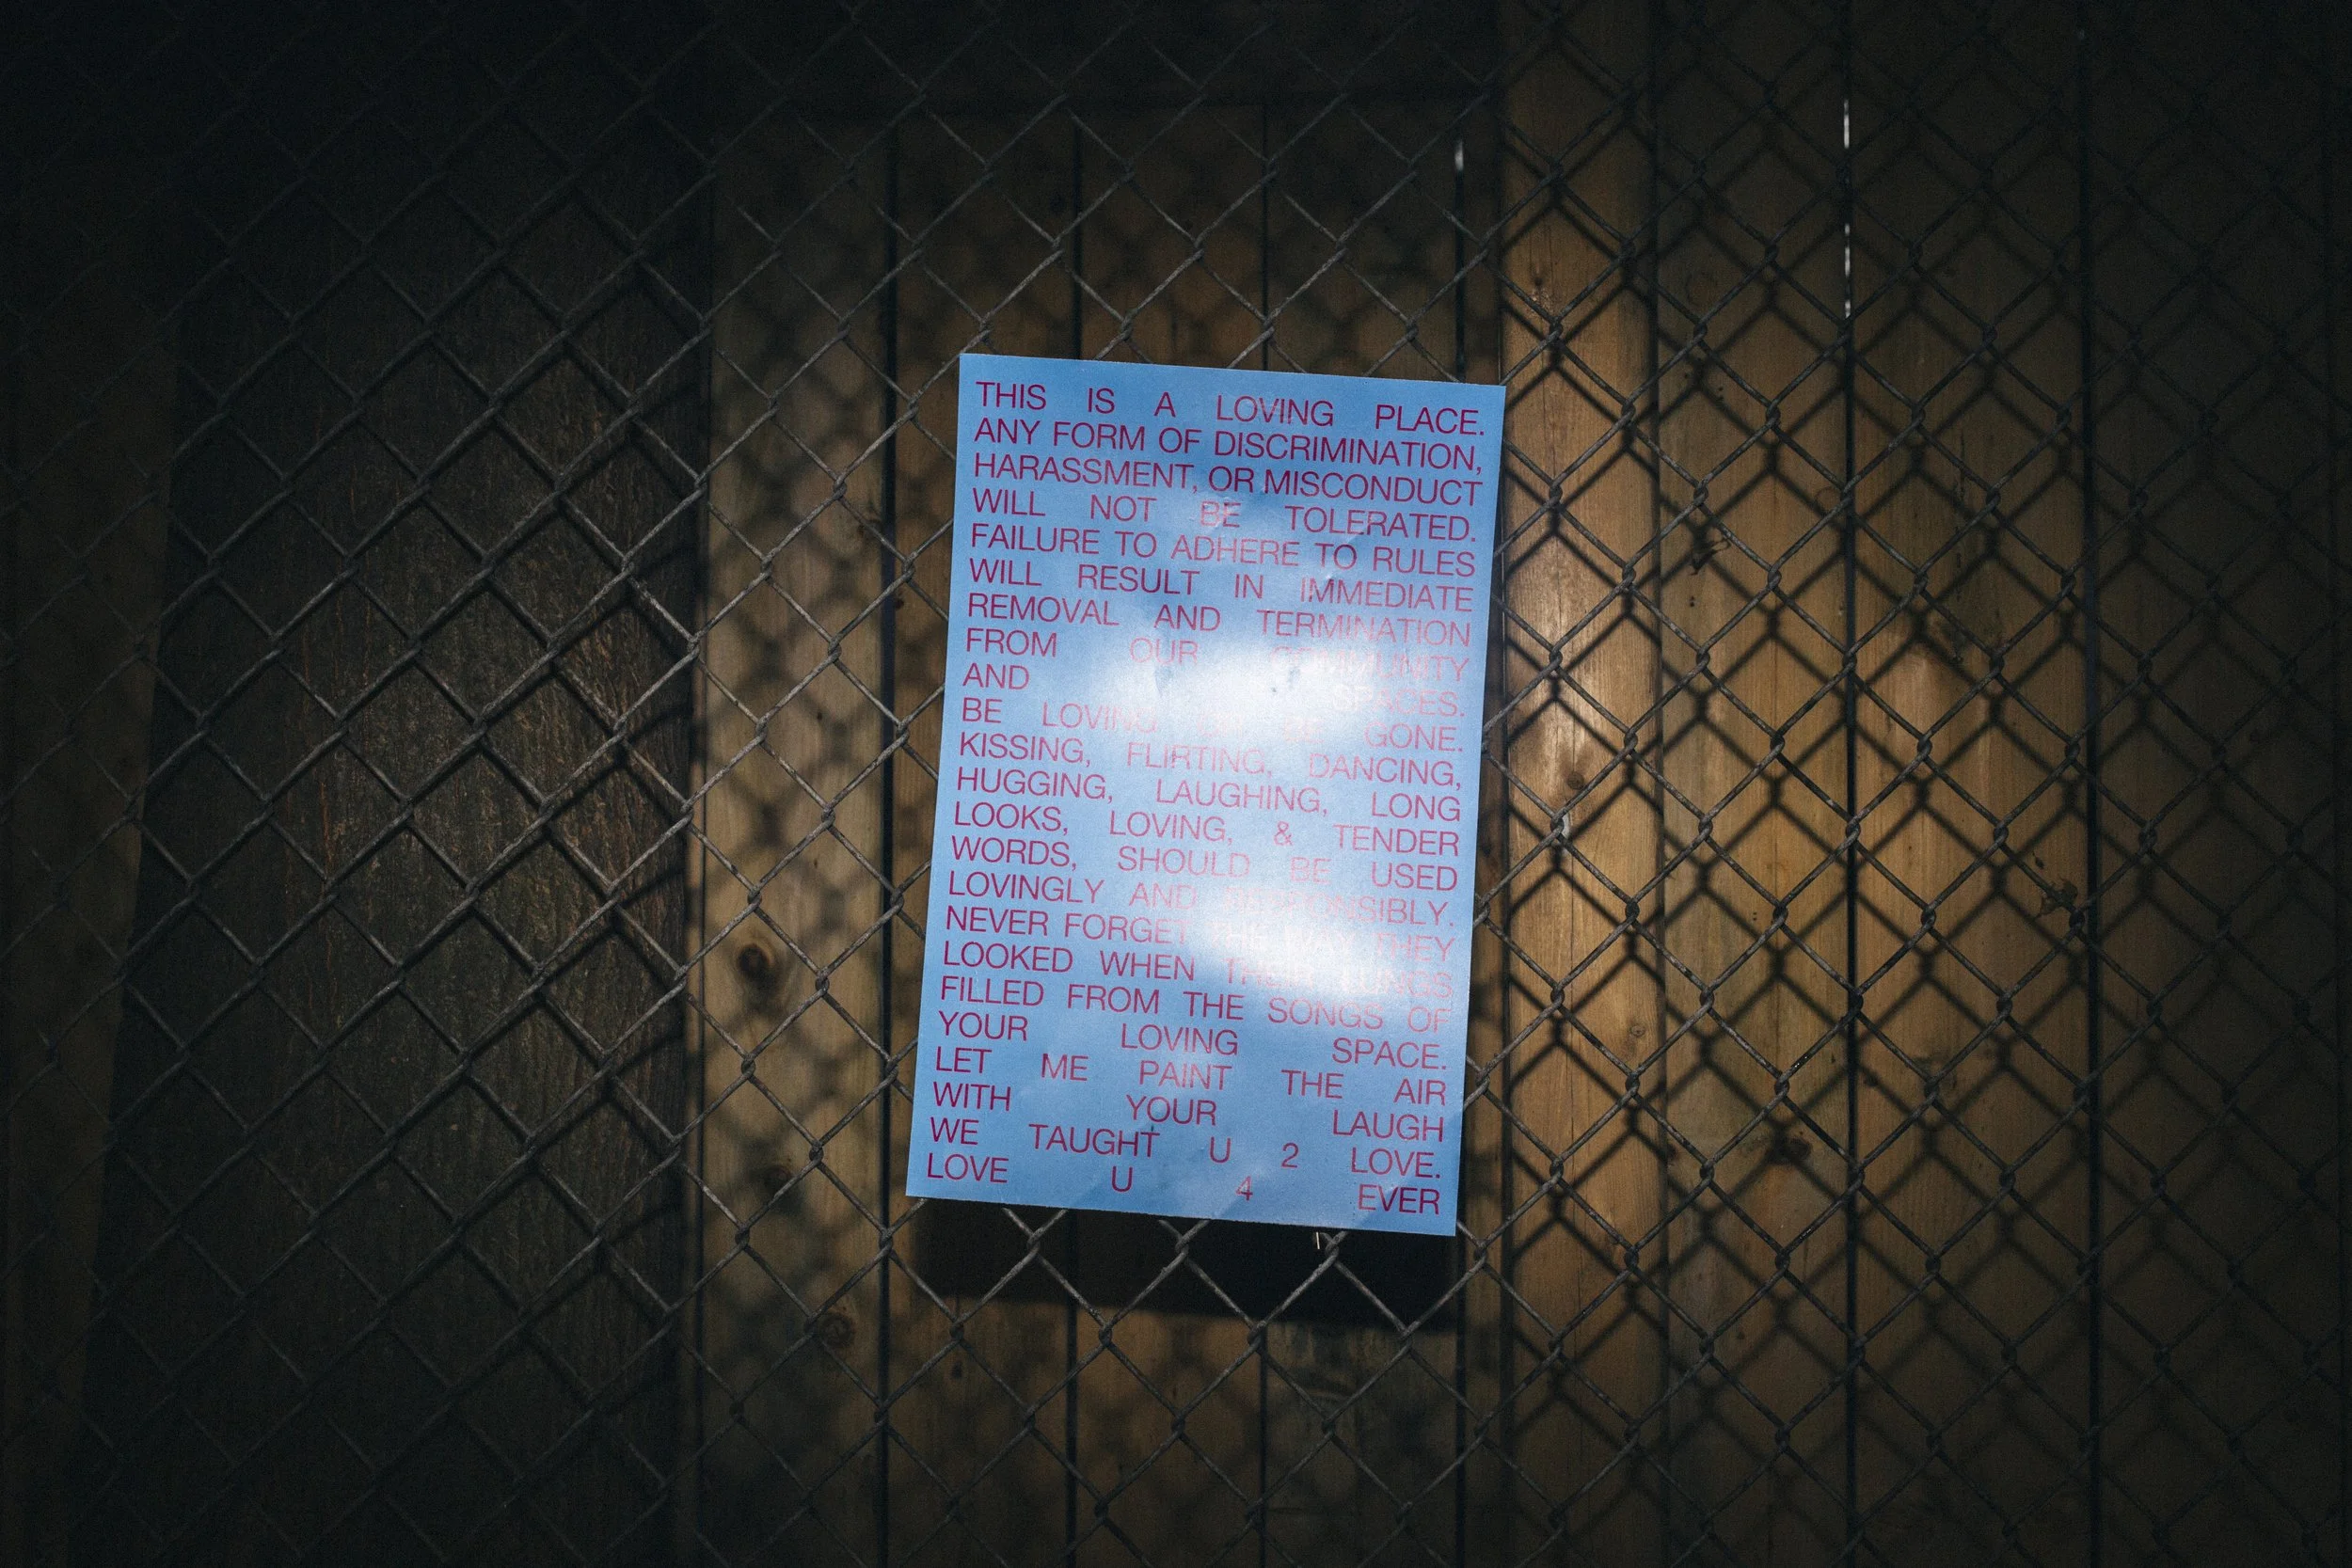 THIS IS A LOVING PLACE.
ANY FORM OF DISCRIMINATION,
HARASSMENT, OR MISCONDUCT
WILL NOT BE TOLERATED.
FAILURE TO ADHERE TO RULES
WILL RESULT IN IMMEDIATE
REMOVAL AND TERMINATION
FROM OUR COMMUNITY
AND SPACES.
BE LOVING OR BE GONE.
KISSING, FLIRTING, DANCING,
HUGGING, LAUGHING, LONG
LOOKS, LOVING, & TENDER
WORDS, SHOULD BE USED
LOVINGLY AND RESPONSIBLY.
NEVER FORGET THE WAY THEY
LOOKED WHEN THEIR LUNGS
FILLED FROM THE SONGS OF
YOUR LOVING SPACE.
LET ME PAINT THE AIR
WITH YOUR LAUGH
WE TAUGHT U 2 LOVE.
LOVE U 4 EVER